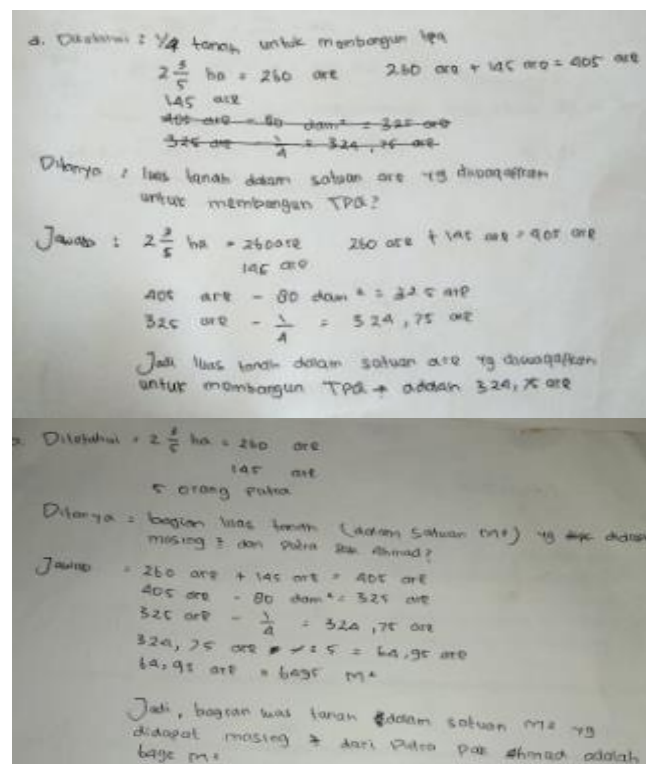 a. Diketahui : 1/4 tanah untuk membangun tpa
2 3/5 ha = 260 are 260 are + 145 are = 405 are
145 are
405 are - 80 dam² = 325 are
325 are - 1/4 = 324,75 are
Ditanya : luas tanah dalam satuan are yg diwaqafkan
untuk membangun TPA?
Jawab : 2 3/5 ha = 260 are 260 are + 145 are = 405 are
145 are
405 are - 80 dam² = 325 are
325 are - 1/4 = 324,75 are
Jadi luas tanah dalam satuan are yg diwaqafkan
untuk membangun TPA adalah 324,75 are
Diketahui = 2 3/5 ha = 260 are
145 are
5 orang putra
Ditanya = bagian luas tanah (dalam satuan m²) yg
masing 2 dari putra Pak Ahmad?
Jawab = 260 are + 145 are = 405 are
405 are - 80 dam² = 325 are
325 are - 1/4 = 324,75 are
324,75 are : 5 = 64,95 are
64,95 are = 6495 m²
Jadi, bagian luas tanah dalam satuan m² yg
didapat masing 2 dari Putra pak Ahmad adalah
m²